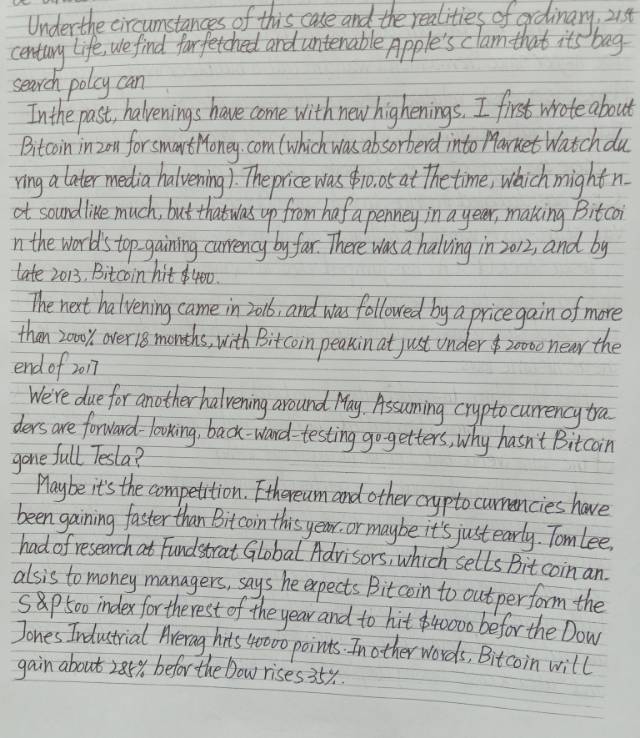 Under the circumstances of this case and the realities of ordinary, 21st
century life, we find farfetched and untenable Apple's clam that its bag-
search polcy can
In the past, halvenings have come with new highenings. I first wrote about
Bitcoin in 2011 for smartMoney.com (which was absorberd into Market Watch du
ring a later media halvening). The price was $10.05 at The time, which might n-
ot sound like much, but that was up from haf a penney in a year, making Bitcoi
n the world's top-gaining currency by far. There was a halving in 2012, and by
late 2013, Bitcoin hit $400.
The next halvening came in 2016, and was followed by a price gain of more
than 2000% over 18 months, with Bitcoin peakin at just under $20000 near the
end of 2017
We're due for another halvening around May. Assuming crypto currency tra
ders are forward-looking, back-ward-testing go-getters, why hasn't Bitcoin
gone full Tesla?
Maybe it's the competition. Ethereum and other crypto currencies have
been gaining faster than Bitcoin this year. or maybe it's just early. Tom Lee,
had of research at Fundstrat Global Advisors, which sells Bitcoin an-
alsis to money managers, says he expects Bitcoin to outperform the
S&P 500 index for the rest of the year and to hit $40000 befor the Dow
Jones Industrial Averag hits 40000 points. In other words, Bitcoin will
gain about 285% befor the Dow rises 35%.